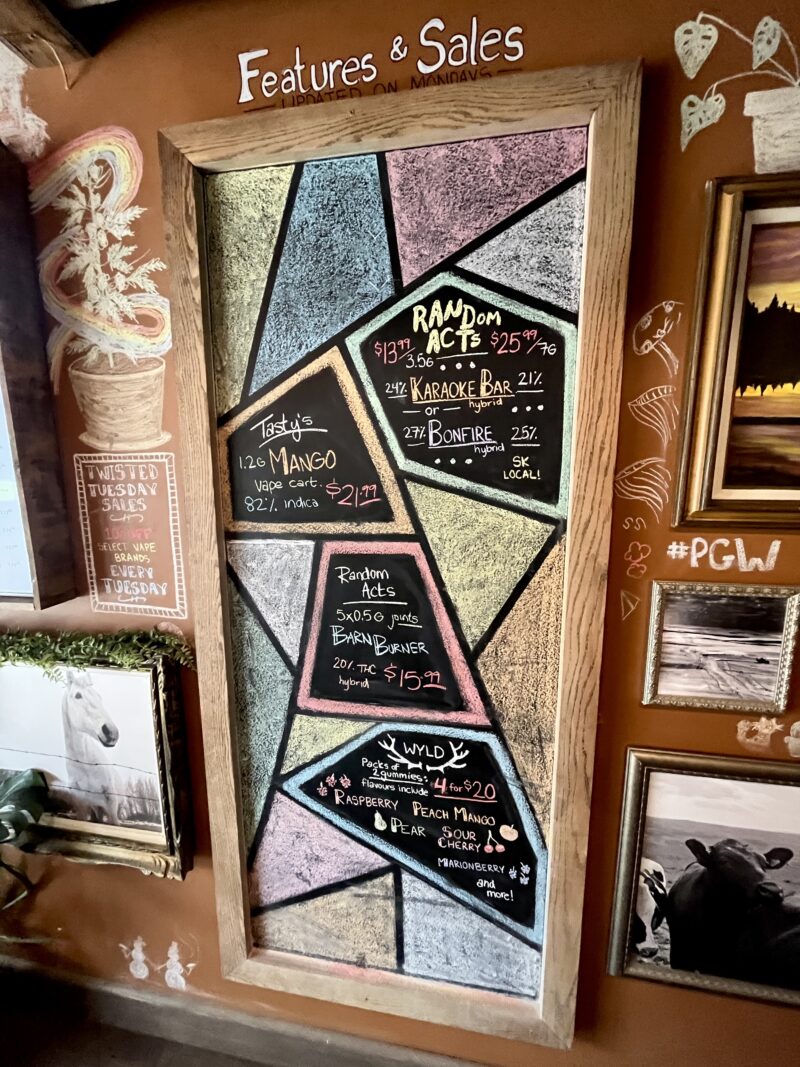 Features & Sales
UPDATED ON MONDAYS
RANDom
ACTs
$13.99/3.5G $25.99/7G
24% KARAOKE BAR 21%
hybrid
or
27% BONFIRE 25%
hybrid
SK
LOCAL!
Tasty's
1.2G MANGO
Vape cart.
82% indica $21.99
TWISTED
TUESDAY
SALES
SELECT VAPE
BRANDS
EVERY
TUESDAY
#PGW
Random
Acts
5x0.5G joints
BARN BURNER
20% THC
hybrid $15.99
WYLD
Packs of
2 gummies: 4 for $20
flavours include
RASPBERRY PEACH MANGO
PEAR SOUR
CHERRY
MARIONBERRY
and
more!